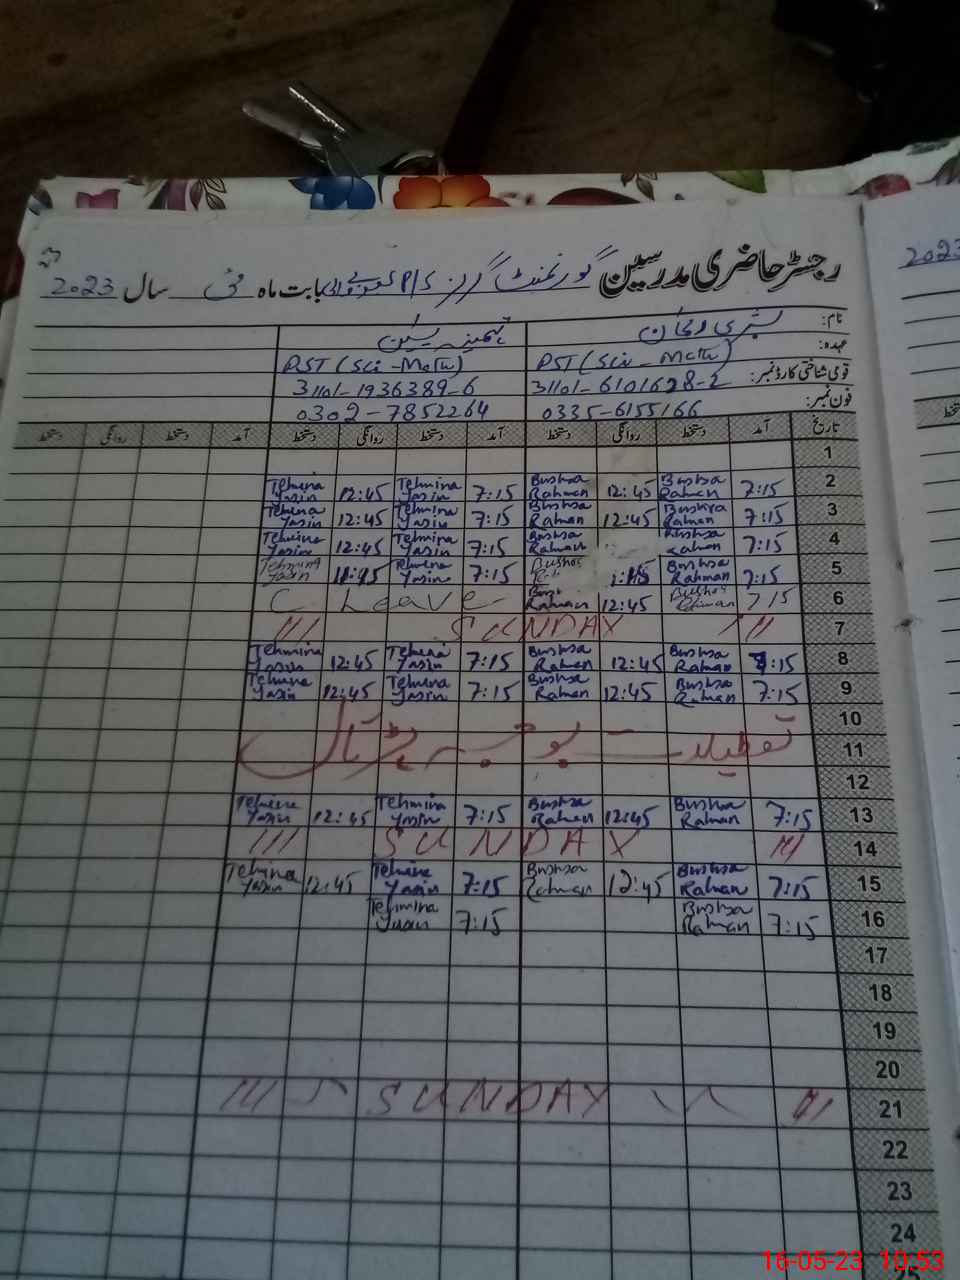 رجسٹر حاضری مدرسین گورنمنٹ گرلز P/S بابت ماہ مئی سال 2023
نام: بشریٰ رحمان تہمینہ یٰسین
عہدہ: PST (Sci - Math) PST (Sci - Math)
قومی شناختی کارڈ نمبر: 31101-6101628-2 31101-1936389-6
فون نمبر: 0335-6155166 0302-7852264
تاریخ آمد دستخط روانگی دستخط آمد دستخط روانگی دستخط آمد دستخط روانگی دستخط
1
2 7:15 Bushra Rahman 12:45 Bushra Rahman 7:15 Tehmina Yasin 12:45 Tehmina Yasin
3 7:15 Bushra Rahman 12:45 Bushra Rahman 7:15 Tehmina Yasin 12:45 Tehmina Yasin
4 7:15 Bushra Rahman Bushra Rahman 7:15 Tehmina Yasin 12:45 Tehmina Yasin
5 7:15 Bushra Rahman Bushra 7:15 Tehmina Yasin 11:45 Tehmina Yasin
6 7:15 Bushra Rahman 12:45 Bushra Rahman C Leave
7 SUNDAY
8 7:15 Bushra Rahman 12:45 Bushra Rahman 7:15 Tehmina Yasin 12:45 Tehmina Yasin
9 7:15 Bushra Rahman 12:45 Bushra Rahman 7:15 Tehmina Yasin 12:45 Tehmina Yasin
10
11 تعطیلات بوجہ ہڑتال
12
13 7:15 Bushra Rahman 12:45 Bushra Rahman 7:15 Tehmina Yasin 12:45 Tehmina Yasin
14 SUNDAY
15 7:15 Bushra Rahman 12:45 Bushra Rahman 7:15 Tehmina Yasin 12:45 Tehmina Yasin
16 7:15 Bushra Rahman 7:15 Tehmina Yasin
17
18
19
20
21 SUNDAY
22
23
24
16-05-23 10:53
2023